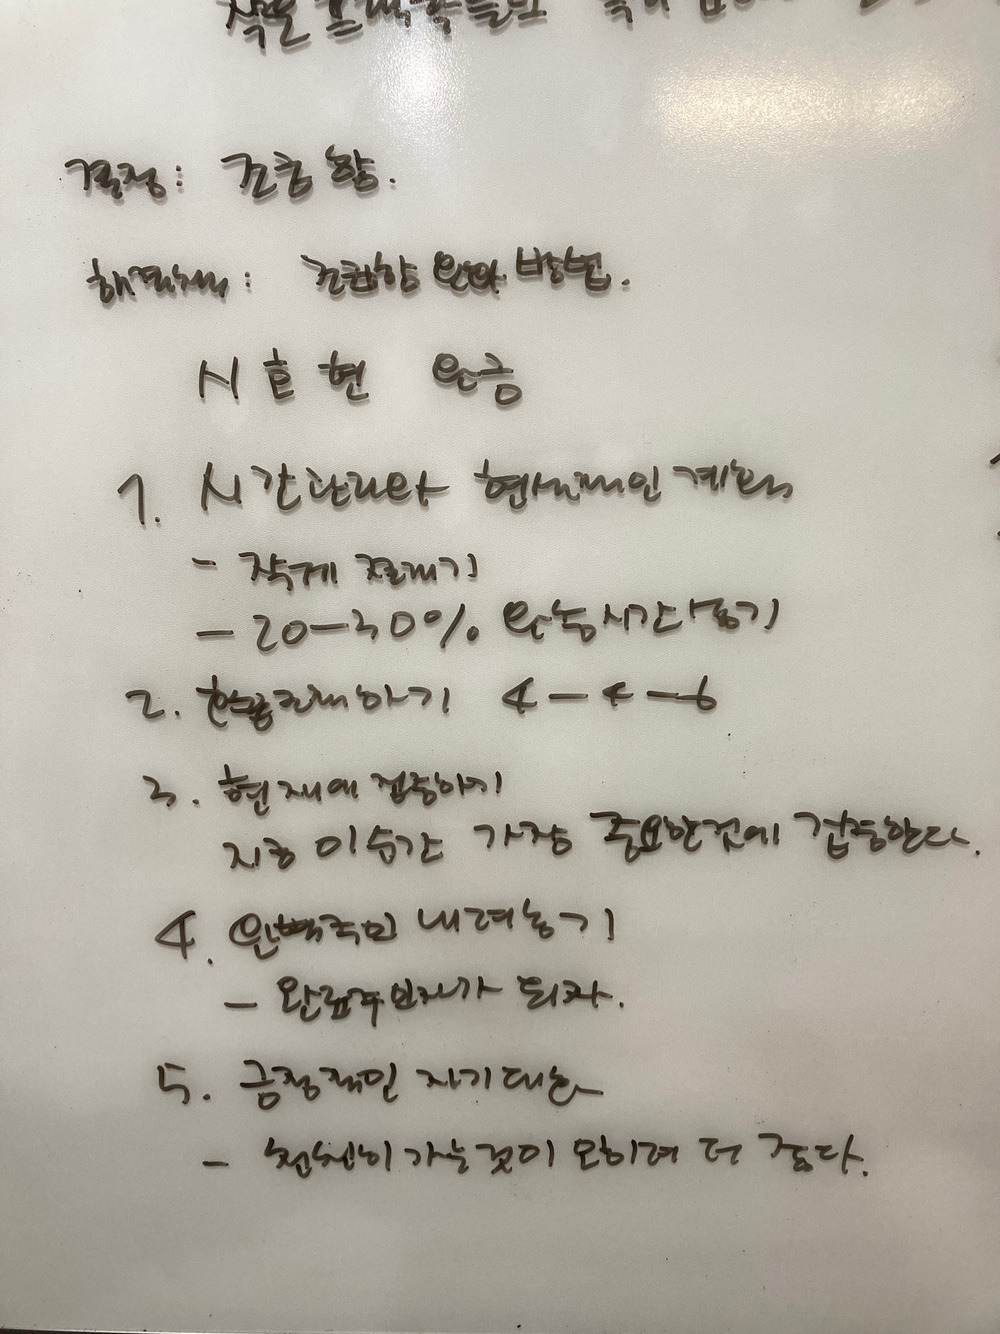 작은
결정: 조급함.
해결책: 조급함 완화 방법.
시호현 완긍
1. 시간관리와 현실적인 계획
- 작게 쪼개기
- 20-30% 완충시간 넣기
2. 호흡조절하기 4-4-6
3. 현재에 집중하기
지금 이순간 가장 중요한것에 집중한다.
4. 완벽주의 내려놓기
- 완료주의자가 되자.
5. 긍정적인 자기대화
- 천천히 가는것이 오히려 더 좋다.